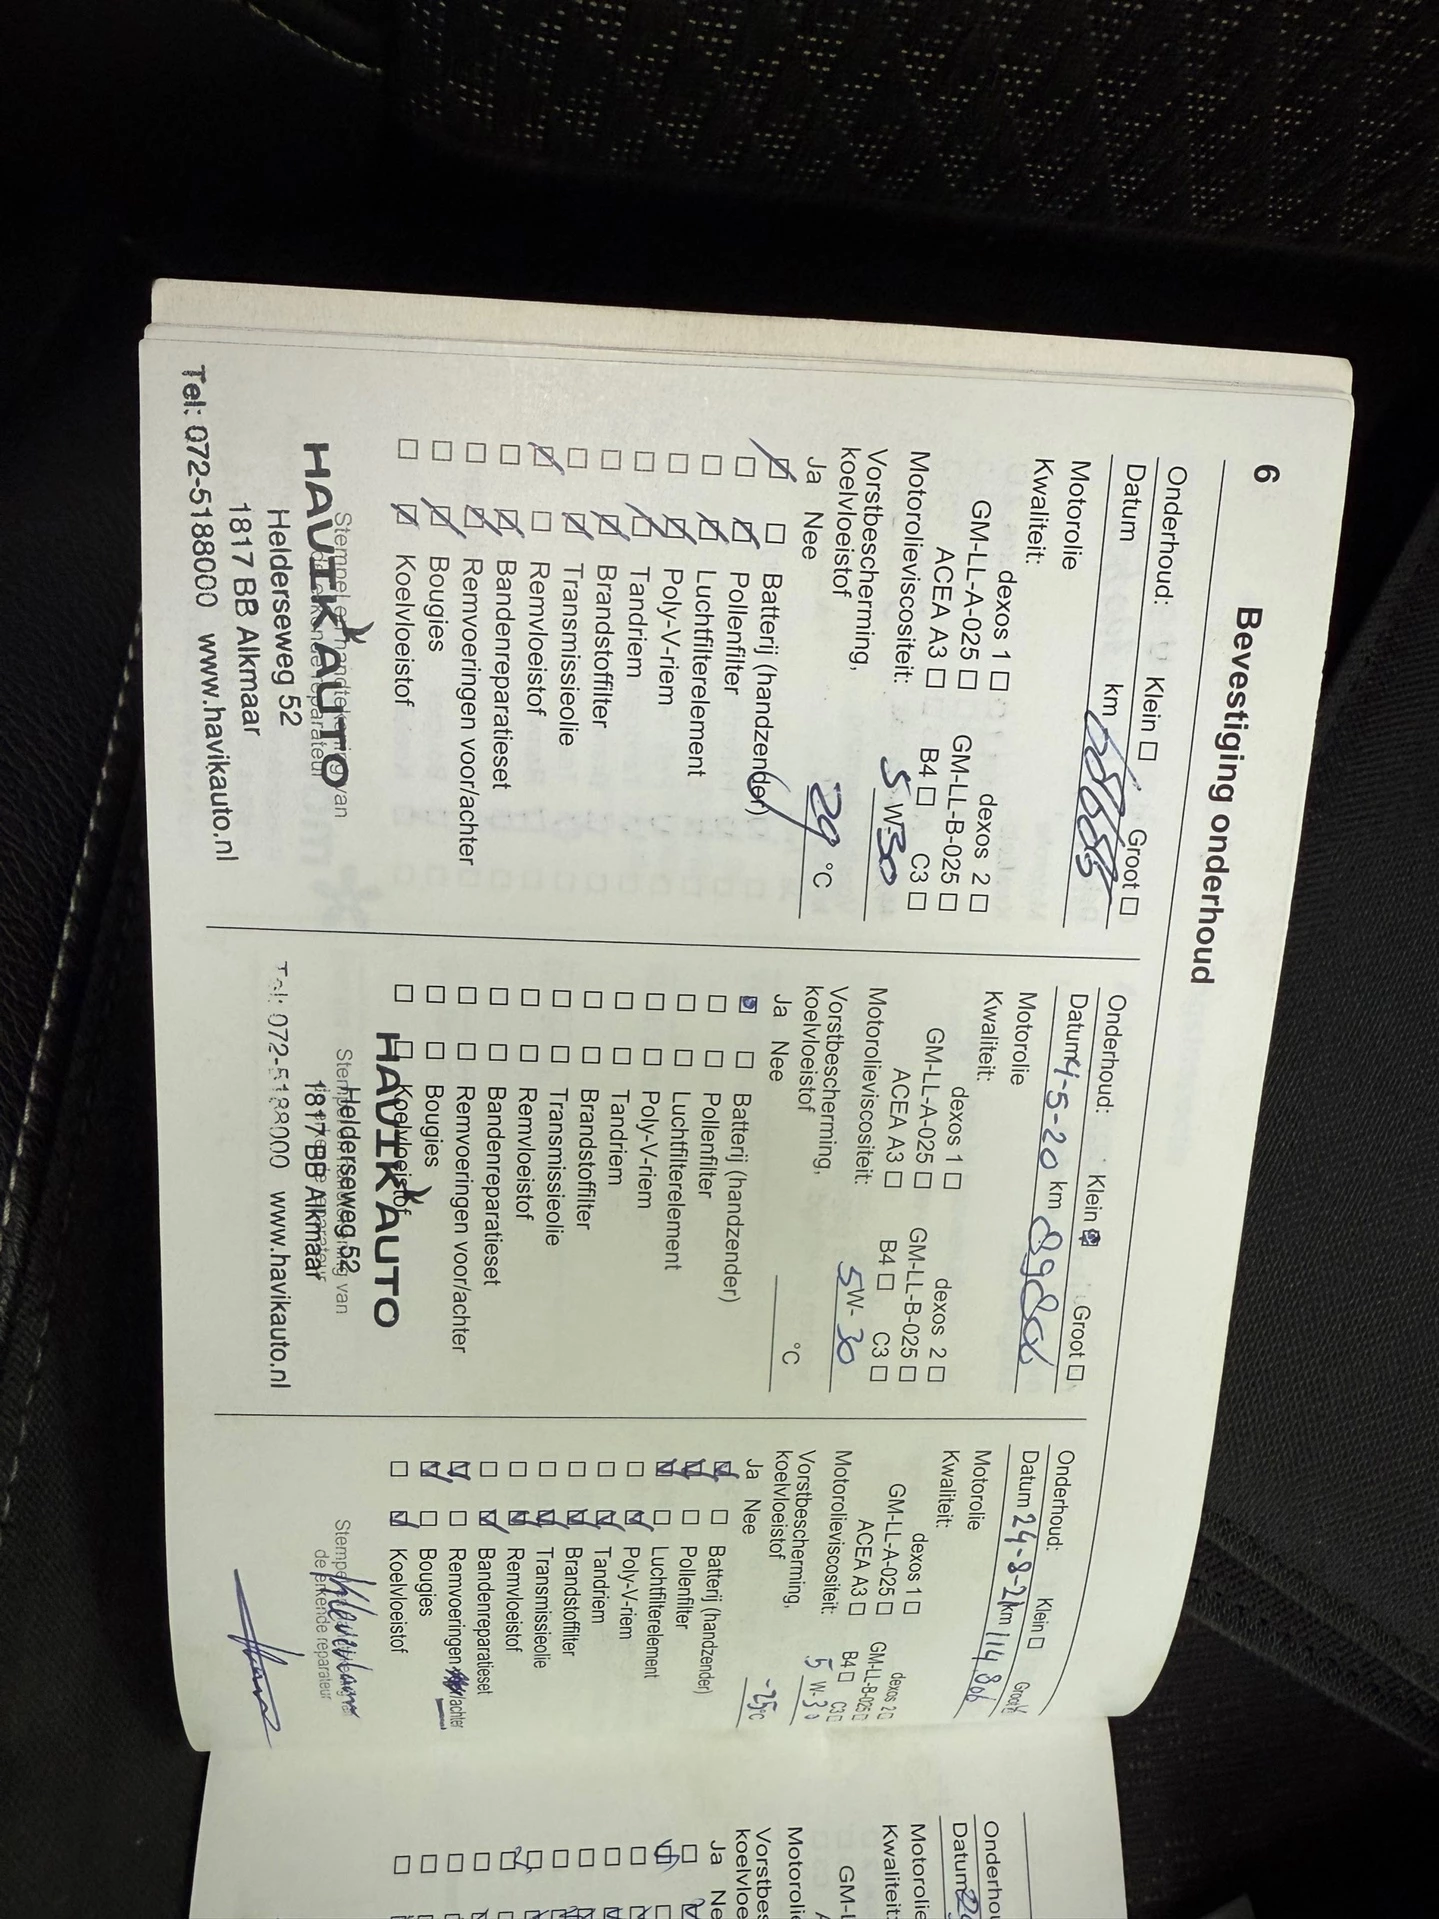 6 Bevestiging onderhoud
Onderhoud: Klein Groot
Datum km
Motorolie
Kwaliteit:
dexos 1 dexos 2
GM-LL-A-025 GM-LL-B-025
ACEA A3 B4 C3
Motorolieviscositeit: 5 W-30
Vorstbescherming,
koelvloeistof °C
Ja Nee
Batterij (handzender)
Pollenfilter
Luchtfilterelement
Poly-V-riem
Tandriem
Brandstoffilter
Transmissieolie
Remvloeistof
Bandenreparatieset
Remvoeringen voor/achter
Bougies
Koelvloeistof
Stempel en handtekening van
de erkende reparateur
HAVIK AUTO
Helderseweg 52
1817 BB Alkmaar
Tel: 072-5188000 www.havikauto.nl
Onderhoud: Klein Groot
Datum 4-5-20 km
Motorolie
Kwaliteit:
dexos 1 dexos 2
GM-LL-A-025 GM-LL-B-025
ACEA A3 B4 C3
Motorolieviscositeit: 5 W-30
Vorstbescherming,
koelvloeistof °C
Ja Nee
Batterij (handzender)
Pollenfilter
Luchtfilterelement
Poly-V-riem
Tandriem
Brandstoffilter
Transmissieolie
Remvloeistof
Bandenreparatieset
Remvoeringen voor/achter
Bougies
Koelvloeistof
HAVIK AUTO
Stempel en handtekening van
de erkende reparateur
Helderseweg 52
1817 BB Alkmaar
Tel: 072-5188000 www.havikauto.nl
Onderhoud: Klein Groot
Datum 24-8-21 km 114.806
Motorolie
Kwaliteit:
dexos 1 dexos 2
GM-LL-A-025 GM-LL-B-025
ACEA A3 B4 C3
Motorolieviscositeit: 5 W-30
Vorstbescherming,
koelvloeistof -25°C
Ja Nee
Batterij (handzender)
Pollenfilter
Luchtfilterelement
Poly-V-riem
Tandriem
Brandstoffilter
Transmissieolie
Remvloeistof
Bandenreparatieset
Remvoeringen /achter
Bougies
Koelvloeistof
de erkende reparateur
Onderhou
Datum
Motorolie
Kwaliteit:
GM-L
Motoroli
Vorstbes
koelvloe
Ja Ne